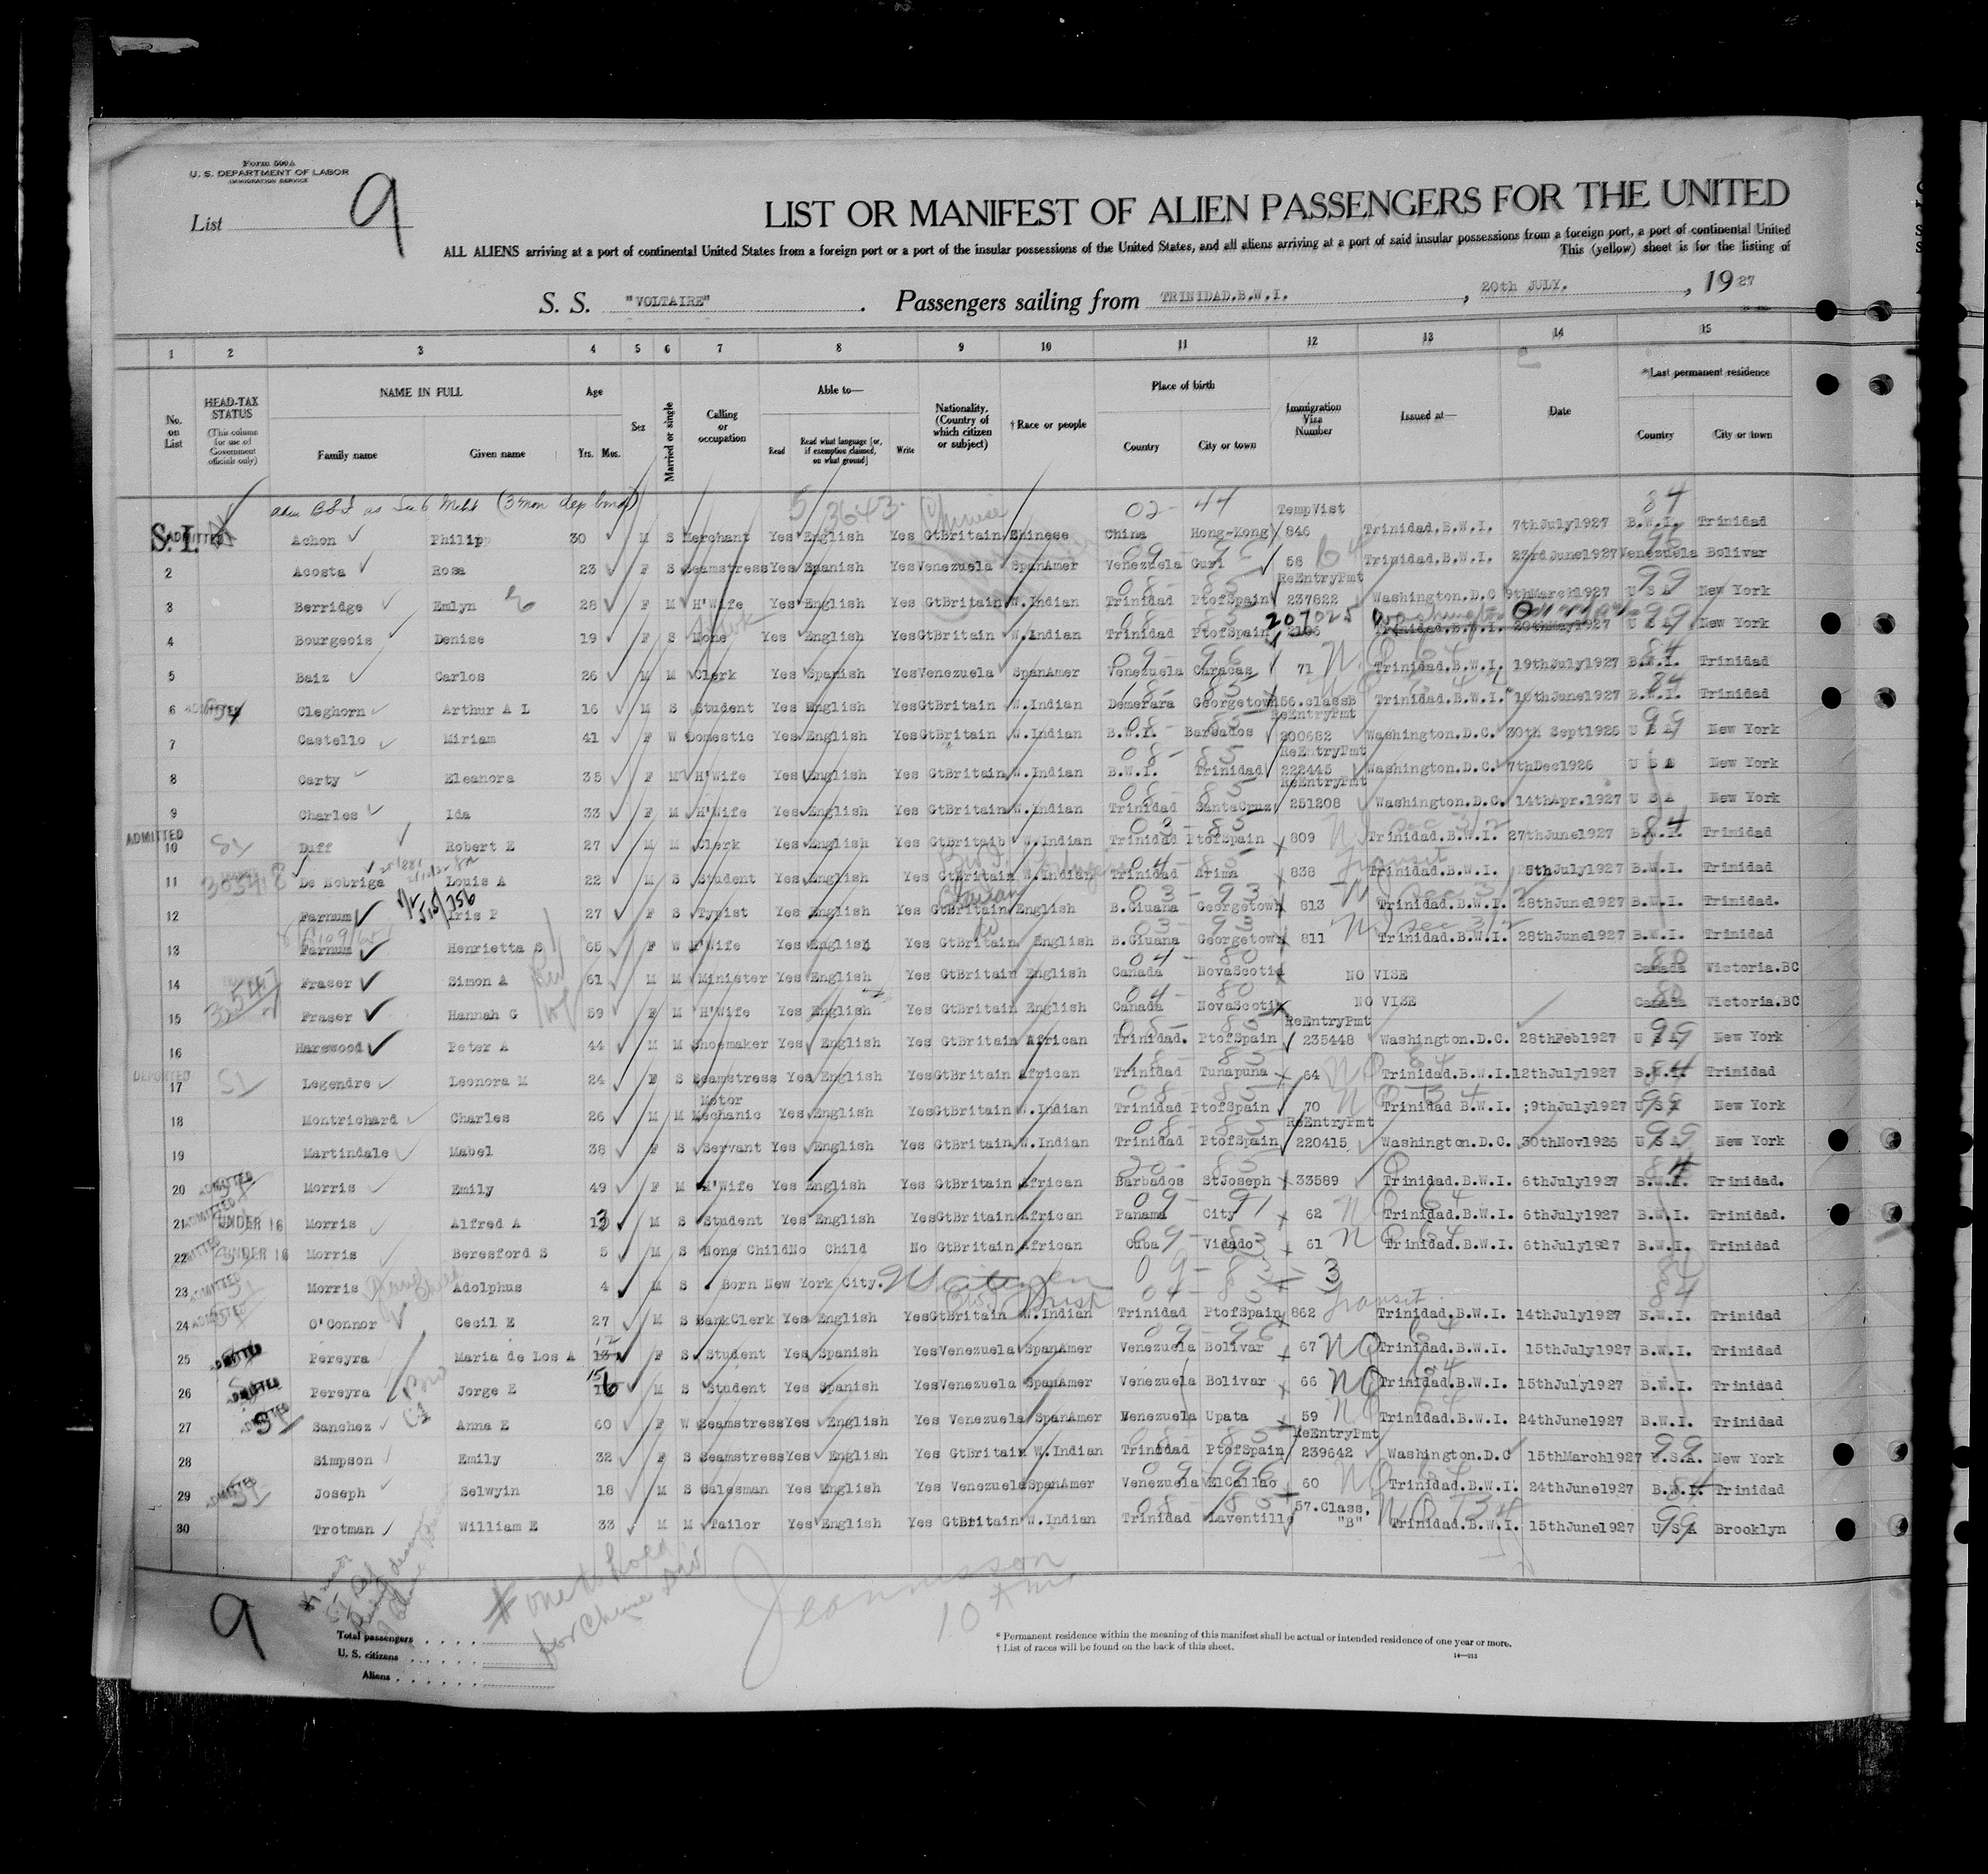 Form 500A
U. S. DEPARTMENT OF LABOR
IMMIGRATION SERVICE
List 9
LIST OR MANIFEST OF ALIEN PASSENGERS FOR THE UNITED
ALL ALIENS arriving at a port of continental United States from a foreign port or a port of the insular possessions of the United States, and all aliens arriving at a port of said insular possessions from a foreign port, a port of continental United
This (yellow) sheet is for the listing of
S. S. "VOLTAIRE". Passengers sailing from TRINIDAD.B.W.I., 20th JULY., 1927
1 2 3 4 5 6 7 8 9 10 11 12 13 14 15
No. on List
HEAD-TAX STATUS (This column for use of Government officials only)
NAME IN FULL Family name Given name
Age Yrs. Mos.
Sex
Married or single
Calling or occupation
Able to— Read Read what language [or, if exemption claimed, on what ground] Write
Nationality. (Country of which citizen or subject)
† Race or people
Place of birth Country City or town
Immigration Visa Number
Issued at—
Date
*Last permanent residence Country City or town
(3 mon dep bond) 5 3643 Chinese 02 - 44 TempVist 84
S.I. ADMITTED Achon Philipp 30 M S Merchant Yes English Yes GtBritain Chinese China Hong-Kong 846 Trinidad.B.W.I. 7thJuly1927 B.W.I. Trinidad
2 Acosta Rosa 23 F S Seamstress Yes Spanish Yes Venezuela SpanAmer Venezuela Guri 58 Trinidad.B.W.I. 23rdJune1927 Venezuela Bolivar
ReEntryPmt
3 Berridge Emlyn 28 F M H'Wife Yes English Yes GtBritain W.Indian Trinidad PtofSpain 237822 Washington.D.C 9thMarch1927 U S A New York
207025 Washington
4 Bourgeois Denise 19 F S None Yes English Yes GtBritain W.Indian Trinidad PtofSpain 2106 Trinidad.B.W.I. 20thMay1927 U S A New York
5 Baiz Carlos 26 M M Clerk Yes Spanish Yes Venezuela SpanAmer Venezuela Caracas 71 Trinidad.B.W.I. 19thJuly1927 B.W.I. Trinidad
6 ADMITTED Cleghorn Arthur A L 16 M S Student Yes English Yes GtBritain W.Indian Demerara Georgetown 56.classB Trinidad.B.W.I. 10thJune1927 B.W.I. Trinidad
ReEntryPmt
7 Castello Miriam 41 F W Domestic Yes English Yes GtBritain W.Indian B.W.I. Barbados 200682 Washington.D.C. 30th Sept1926 U S A New York
ReEntryPmt
8 Carty Eleanora 35 F M H'Wife Yes English Yes GtBritain W.Indian B.W.I. Trinidad 222445 Washington.D.C. 7thDec1926 U S A New York
ReEntryPmt
9 Charles Ida 33 F M H'Wife Yes English Yes GtBritain W.Indian Trinidad SantaCruz 251208 Washington.D.C. 14thApr.1927 U S A New York
ADMITTED
10 SI Duff Robert E 27 M M Clerk Yes English Yes GtBritaib W.Indian Trinidad PtofSpain 809 Trinidad.B.W.I. 27thJune1927 B.W.I. Trinidad
11 De Nobriga Louis A 22 M S Student Yes English Yes GtBritain W.Indian Trinidad Arima 838 Transit Trinidad.B.W.I. 5thJuly1927 B.W.I. Trinidad
12 Farnum Iris P 27 F S Typist Yes English Yes GtBritain English B.Giuana Georgetown 813 Trinidad.B.W.I. 28thJune1927 B.W.I. Trinidad.
13 Farnum Henrietta S 65 F W H'Wife Yes English Yes GtBritain English B.Giuana Georgetown 811 Trinidad.B.W.I. 28thJune1927 B.W.I. Trinidad
14 Fraser Simon A 61 M M Minister Yes English Yes GtBritain English Canada NovaScotia NO VISE Canada Victoria.BC
15 Fraser Hannah G 59 F M H'Wife Yes English Yes GtBritain English Canada NovaScotia NO VISE Canada Victoria.BC
ReEntryPmt
16 Harewood Peter A 44 M M Shoemaker Yes English Yes GtBritain African Trinidad. PtofSpain 235448 Washington.D.C. 28thFeb1927 U S A New York
DEPORTED
17 SI Legendre Leonora M 24 F S Seamstress Yes English Yes GtBritain African Trinidad Tunapuna 64 Trinidad.B.W.I. 12thJuly1927 B.W.I. Trinidad
Motor
18 Montrichard Charles 26 M M Mechanic Yes English Yes GtBritain W.Indian Trinidad PtofSpain 70 Trinidad B.W.I. ;9thJuly1927 U S A New York
ReEntryPmt
19 Martindale Mabel 38 F S Servant Yes English Yes GtBritain W.Indian Trinidad PtofSpain 220415 Washington.D.C. 30thNov1926 U S A New York
20 ADMITTED Morris Emily 49 F M H'Wife Yes English Yes GtBritain African Barbados StJoseph 33589 Trinidad.B.W.I. 6thJuly1927 B.W.I. Trinidad.
21 ADMITTED UNDER 16 Morris Alfred A 13 M S Student Yes English Yes GtBritain African Panama City 62 Trinidad.B.W.I. 6thJuly1927 B.W.I. Trinidad.
22 ADMITTED UNDER 16 Morris Beresford S 5 M S None Child No Child No GtBritain African Cuba Vidado 61 Trinidad.B.W.I. 6thJuly1927 B.W.I. Trinidad
23 ADMITTED Morris Adolphus 4 M S Born New York City. US citizen
24 ADMITTED O'Connor Cecil E 27 M S BankClerk Yes English Yes GtBritain W.Indian Trinidad PtofSpain 862 Transit Trinidad.B.W.I. 14thJuly1927 B.W.I. Trinidad
25 ADMITTED Pereyra Maria de Los A 13 12 F S Student Yes Spanish Yes Venezuela SpanAmer Venezuela Bolivar 67 Trinidad.B.W.I. 15thJuly1927 B.W.I. Trinidad
26 ADMITTED Pereyra Jorge E 15 M S Student Yes Spanish Yes Venezuela SpanAmer Venezuela Bolivar 66 Trinidad.B.W.I. 15thJuly1927 B.W.I. Trinidad
27 ADMITTED SI Sanchez Anna E 60 F W Seamstress Yes English Yes Venezuela SpanAmer Venezuela Upata 59 Trinidad.B.W.I. 24thJune1927 B.W.I. Trinidad
ReEntryPmt
28 Simpson Emily 32 F S Seamstress Yes English Yes GtBritain W.Indian Trinidad PtofSpain 239642 Washington.D.C 15thMarch1927 U.S.A. New York
29 ADMITTED SI Joseph Selwyin 18 M S Salesman Yes English Yes Venezuela SpanAmer Venezuela ElCallao 60 Trinidad.B.W.I. 24thJune1927 B.W.I. Trinidad
30 Trotman William E 33 M M Tailor Yes English Yes GtBritain W.Indian Trinidad Laventille 57.Class, "B" Trinidad.B.W.I. 15thJune1927 U S A Brooklyn
9
Total passengers
U. S. citizens
Aliens
* Permanent residence within the meaning of this manifest shall be actual or intended residence of one year or more.
† List of races will be found on the back of this sheet.
14—313